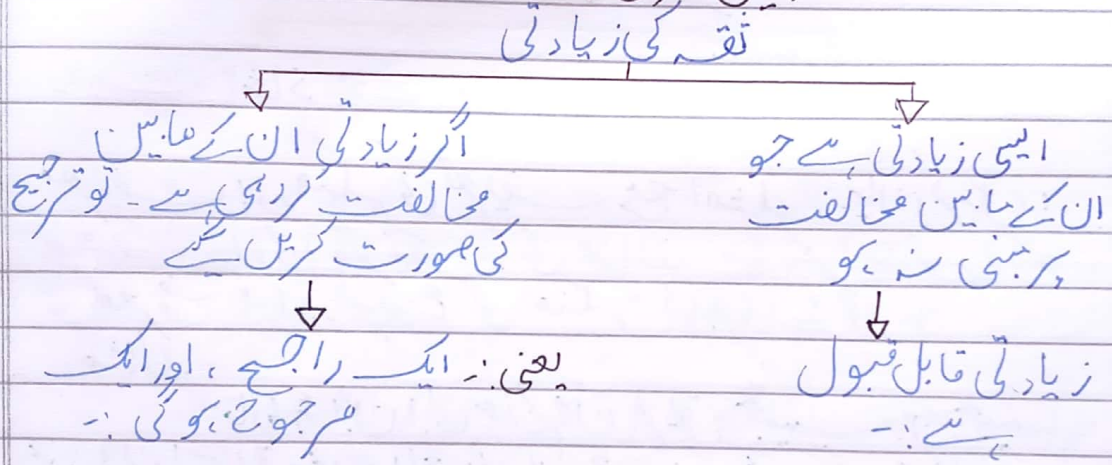 ثقہ کی زیادتی
ایسی زیادتی ہے جو
ان کے مابین مخالفت
پر مبنی نہ ہو
زیادتی قابل قبول
ہے :-
اگر زیادتی ان کے مابین
مخالفت کر رہی ہے - تو ترجیح
کی صورت کریں گے
یعنی :- ایک راجح ، اور ایک
مرجوح ہو گی :-